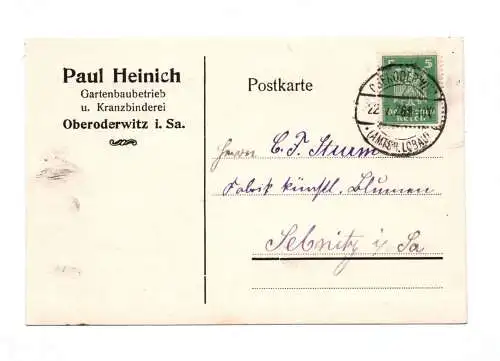 Paul Heinich
Gartenbaubetrieb
u. Kranzbinderei
Oberoderwitz i. Sa.
Postkarte
5 5
Deutsches
Reich
22.
(AMTSH. LÖBAU)
Herrn C. F. Sturm
Fabrik künstl. Blumen
Sebnitz i/Sa